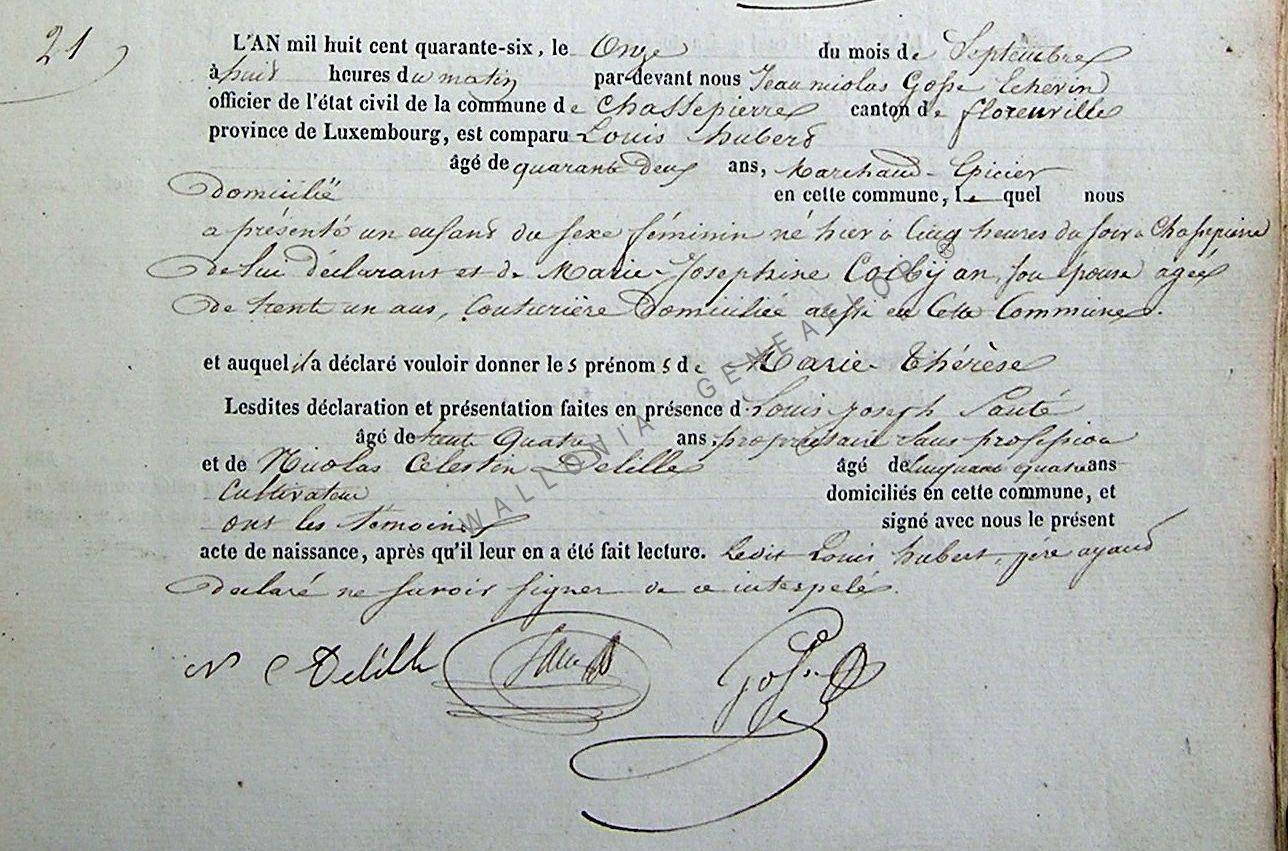 21
L'AN mil huit cent quarante-six, le Onze du mois de Septembre
à huit heures du matin par devant nous Jean nicolas Gosse Echevin
officier de l'état civil de la commune de Chassepierre canton de florenville
province de Luxembourg, est comparu Louis hubert
âgé de quarante deux ans, Marchand-Epicier
domicilié en cette commune, le quel nous
a présenté un enfant du sexe féminin né hier à Cinq heures du soir à Chassepierre
de lui déclarant et de Marie-Josephine Colbijan, son épouse agée
de trente un ans, Couturière domiciliée aussi en Cette Commune.
et auquel il a déclaré vouloir donner le s prénom s de Marie-Thérèse
Lesdites déclaration et présentation faites en présence d. Louis joseph Santé
âgé de trente quatre ans, propriétaire sans profession
et de Nicolas Célestin Delille âgé de cinquante quatre ans
Cultivateur domiciliés en cette commune, et
ont les témoins signé avec nous le présent
acte de naissance, après qu'il leur en a été fait lecture. Ledit Louis hubert, père ayant
declaré ne savoir signer de ce interpelé.
N C Delille Gosse
WALLONIA GENEALOGY ©